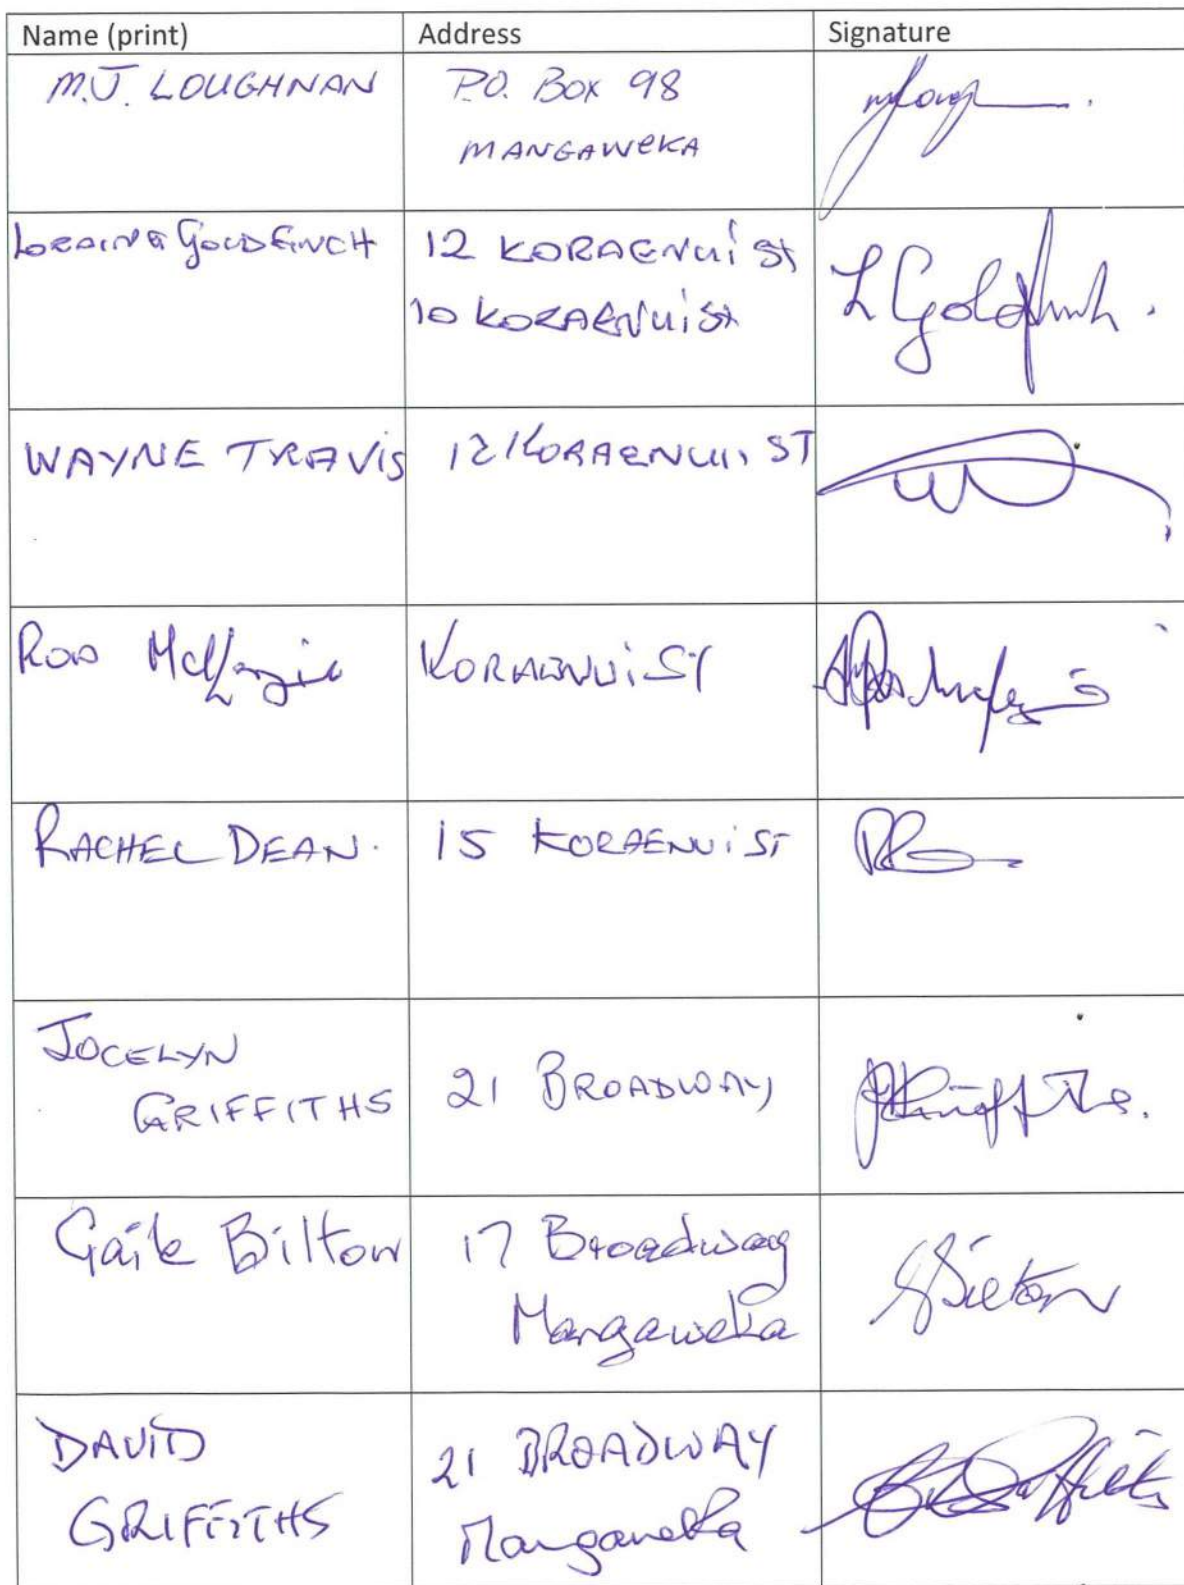 Name (print) Address Signature
M.J. LOUGHNAN P.O. BOX 98
MANGAWEKA
LORAINE GOLDFINCH 12 KORAENUI ST L Goldfinch.
10 KORAENUI ST
WAYNE TRAVIS 12 KORAENUI ST
ROD McKenzie KORAENUI ST
RACHEL DEAN. 15 KORAENUI ST
JOCELYN
GRIFFITHS 21 BROADWAY JGriffiths.
Gaile Bilton 17 Broadway GBilton
Mangaweka
DAVID 21 BROADWAY
GRIFFITHS Mangaweka